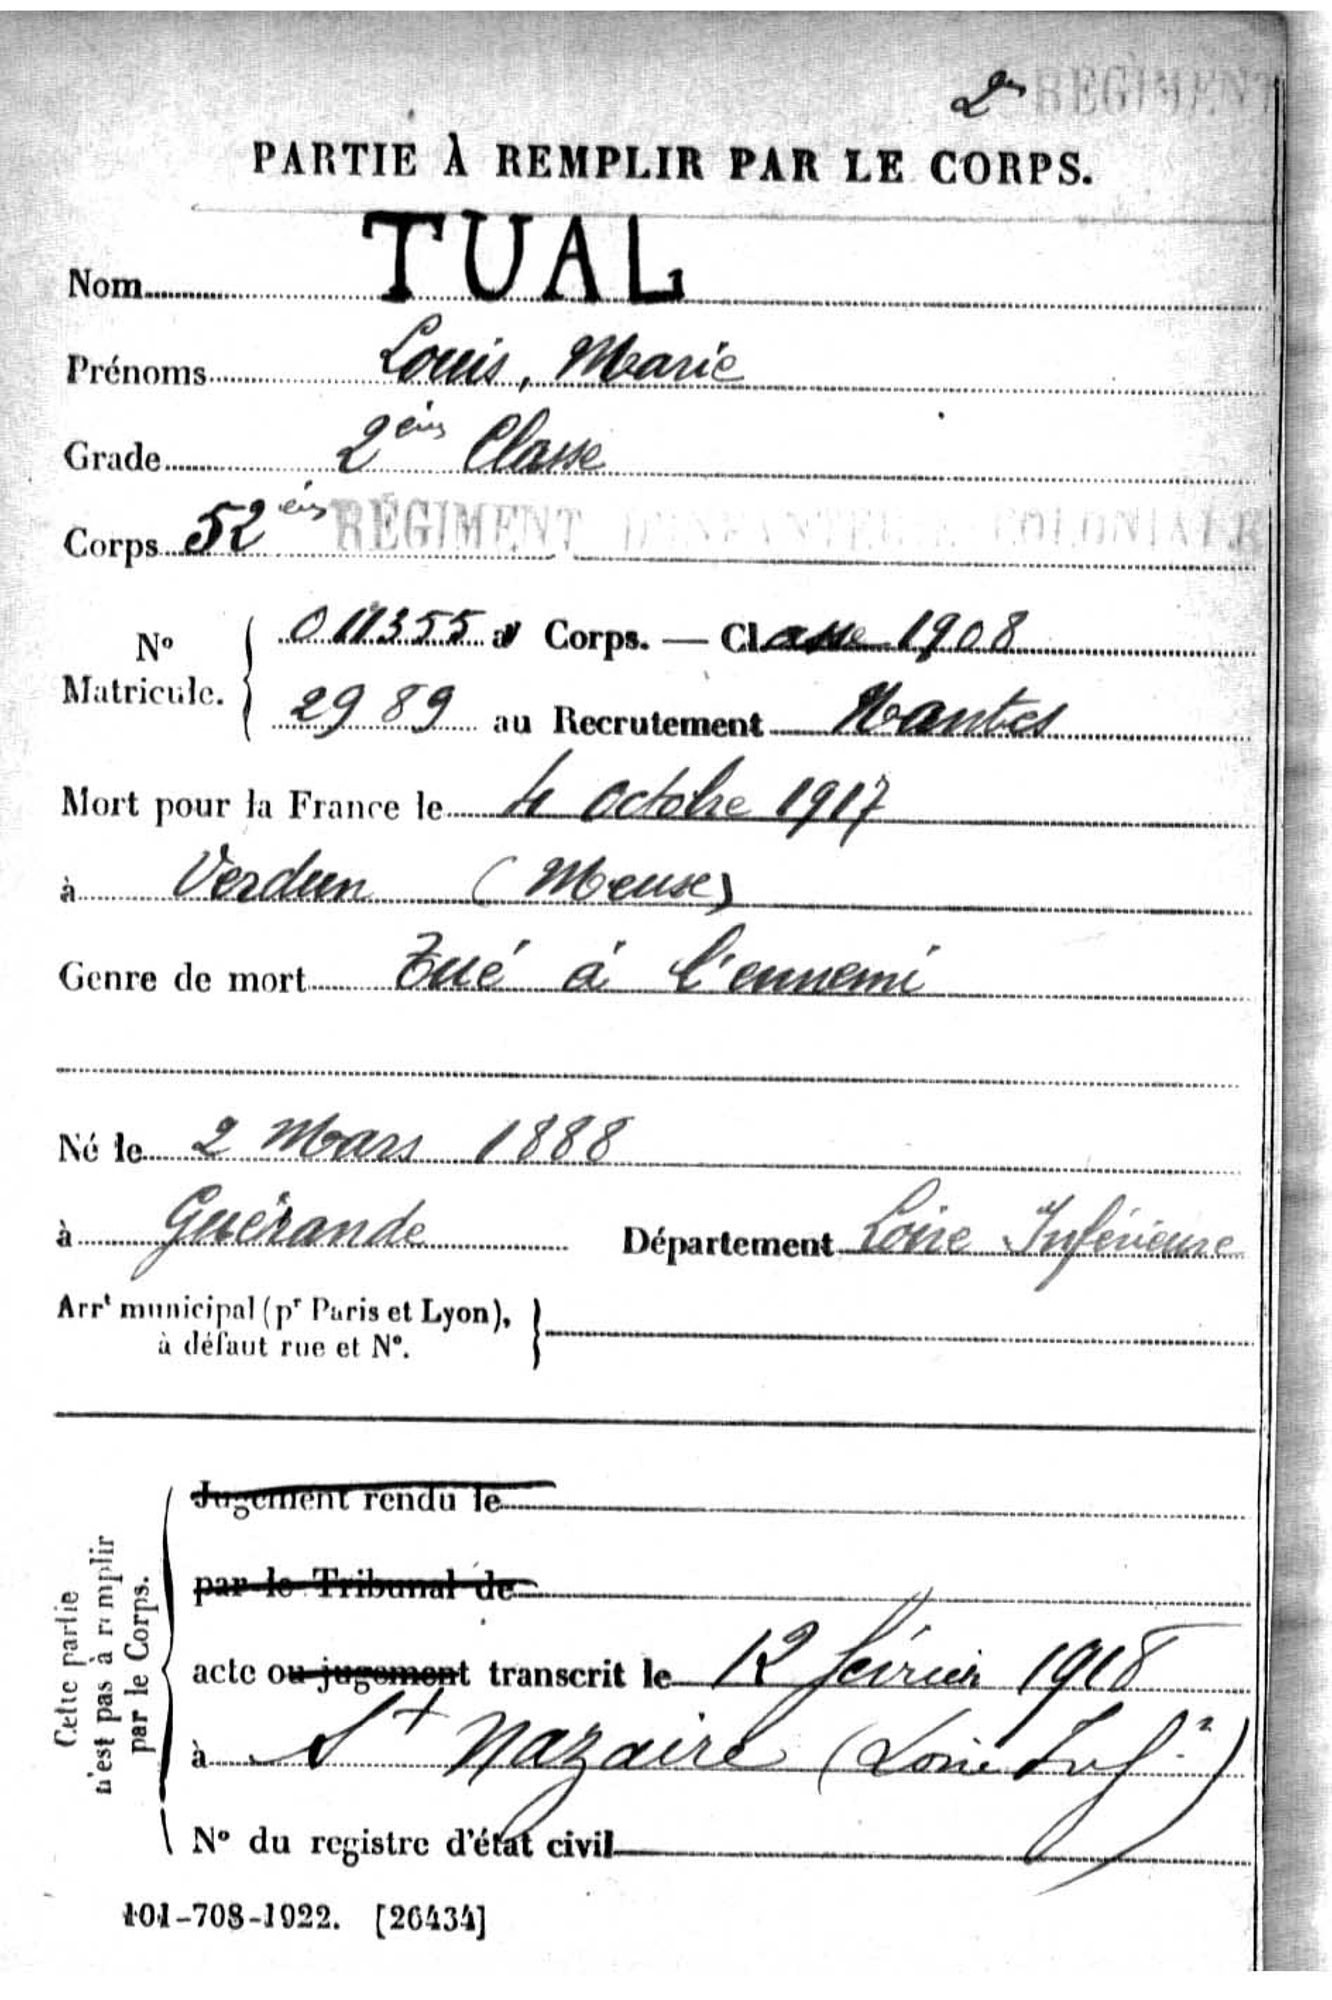 2e REGIMENT
PARTIE À REMPLIR PAR LE CORPS.
Nom TUAL
Prénoms Louis, Marie
Grade 2ème Classe
Corps 52ème RÉGIMENT D'INFANTERIE COLONIALE
Nº Matricule. { 011355 au Corps. — Classe 1908
2989 au Recrutement Nantes
Mort pour la France le 4 Octobre 1917
à Verdun (Meuse)
Genre de mort Tué à l'ennemi
Né le 2 Mars 1888
à Guérande Département Loire Inférieure
Arrt municipal (pr Paris et Lyon),
à défaut rue et Nº.
Cette partie
n'est pas à remplir
par le Corps.
Jugement rendu le
par le Tribunal de
acte ou jugement transcrit le 12 février 1918
à St Nazaire (Loire Infre)
Nº du registre d'état civil
101-708-1922. [26434]